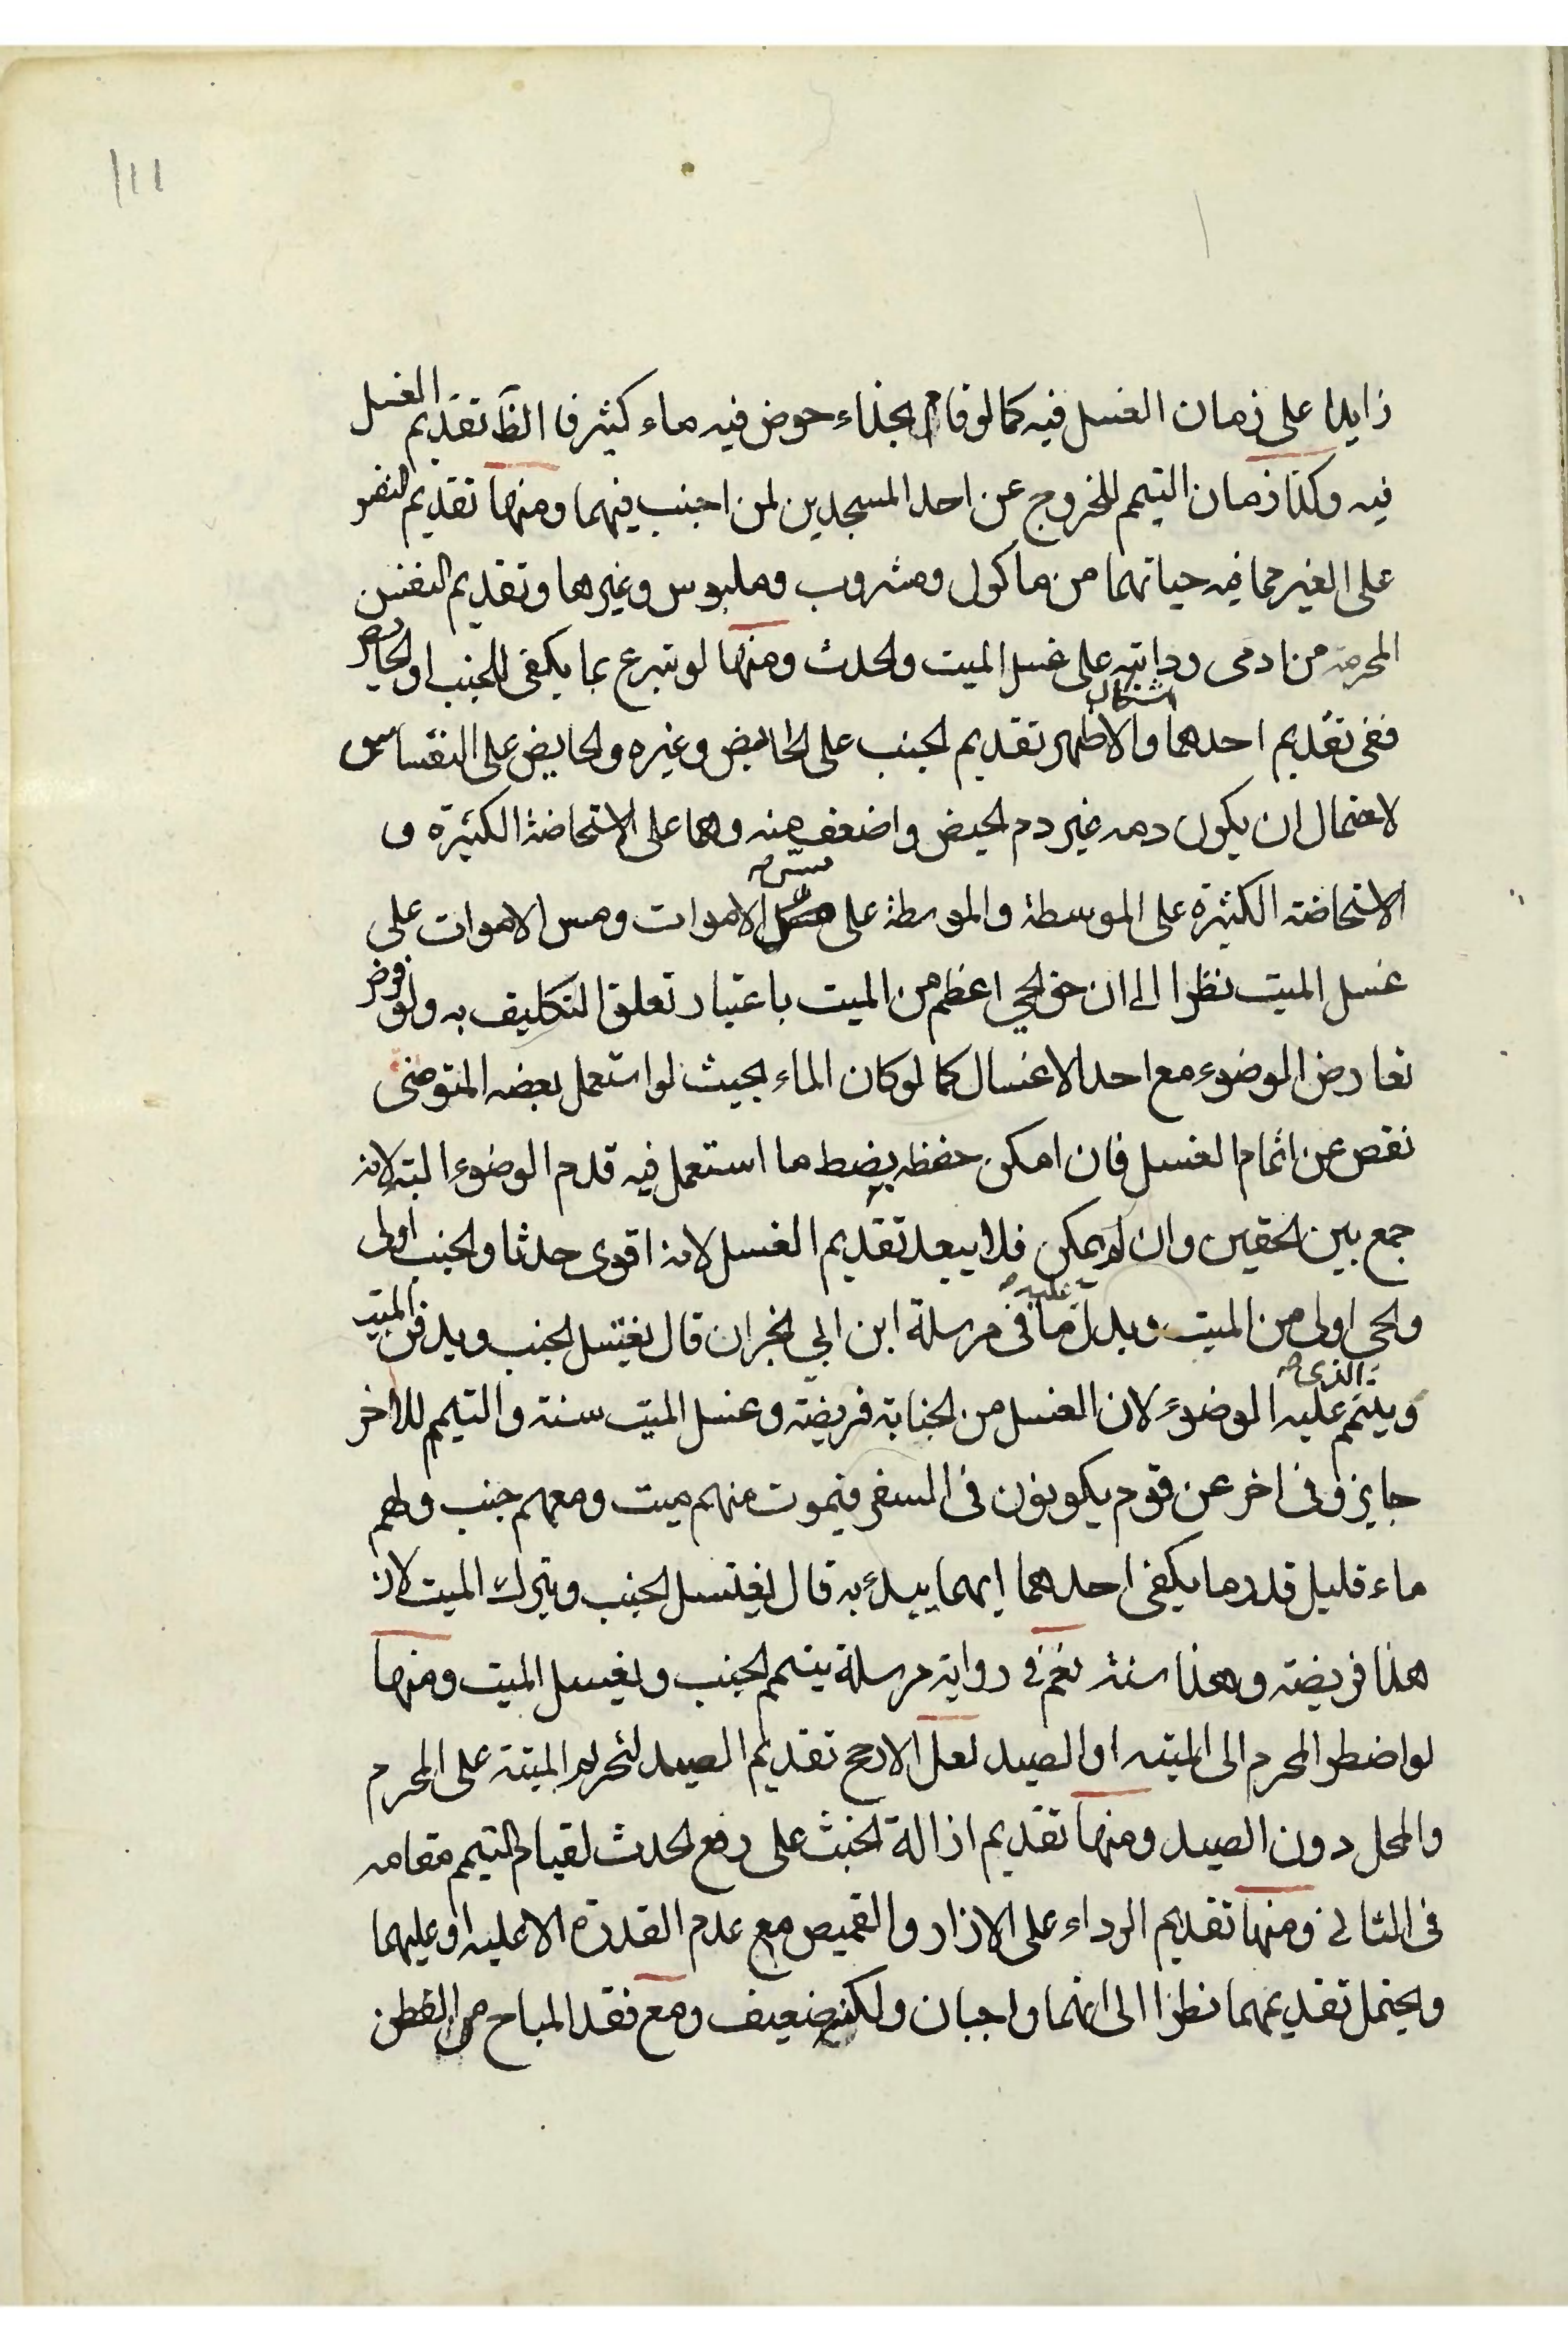 ١١١
زايدا على زمان الغسل فيه كما لو قام بحذاء حوض فيه ماء كثير فا الظ تقديم الغسل
فيه وكذا زمان التيمم للخروج عن احد المسجدين لمن اجنب فيهما ومنها تقديم النفس
على الغير مما فيه حياتهما من ماكول ومشروب وملبوس وغيرها وتقديم النفس
المحرمة من ادمى ودابته على غسل الميت والحدث ومنها لو تبرع بما يكفى للجنب او الحايض
ففى تقديم احدهما اشكال والاظهر تقديم الجنب على الحائض وغيره والحايض على النفساس
لاحتمال ان يكون دمه غير دم الحيض واضعف منه وهما على الاستحاضة الكثيرة و
الاستحاضة الكثيرة على الموسطة والموسطة على مس الاموات ومس الاموات على
غسل الميت نظرا الى ان حق الحي اعظم من الميت باعتبار تعلق التكليف به ولو فرض
تعارض الوضوء مع احد الاغسال كما لو كان الماء بحيث لو استعمل بعضه المتوضى
نقص عن اتمام الغسل فان امكن حفظه بضبط ما استعمل فيه قدم الوضوء البتة لانه
جمع بين الحقين وان لم يمكن فلا يبعد تقديم الغسل لانه اقوى حدثا والجنب اولى
والحى اولى من الميت ويدل عليه ما فى مرسلة ابن ابي نجران قال يغتسل الجنب ويدفن الميت
ويتيمم الذى عليه الوضوء لان الغسل من الجنابة فريضة وغسل الميت سنة والتيمم للاخر
جايز وفى اخر عن قوم يكونون فى السفر فيموت منهم ميت ومعهم جنب ولهم
ماء قليل قدر ما يكفى احدهما ايهما يبدء به قال يغتسل الجنب ويترك الميت لان
هذا فريضة وهذا سنة نعم فى رواية مرسلة يتيمم الجنب ويغسل الميت ومنها
لو اضطر المحرم الى الميتة او الصيد لعل الارجح تقديم الصيد لتحريم الميتة على المحرم
والمحل دون الصيد ومنها تقديم ازالة الخبث على رفع الحدث لقيام التيمم مقامه
فى الثانى ومنها تقديم الرداء على الازار والقميص مع عدم القدرة الا عليه او عليهما
ويحتمل تقديمهما نظرا الى انهما واجبان ولكنه ضعيف ومع فقد المباح من القطن